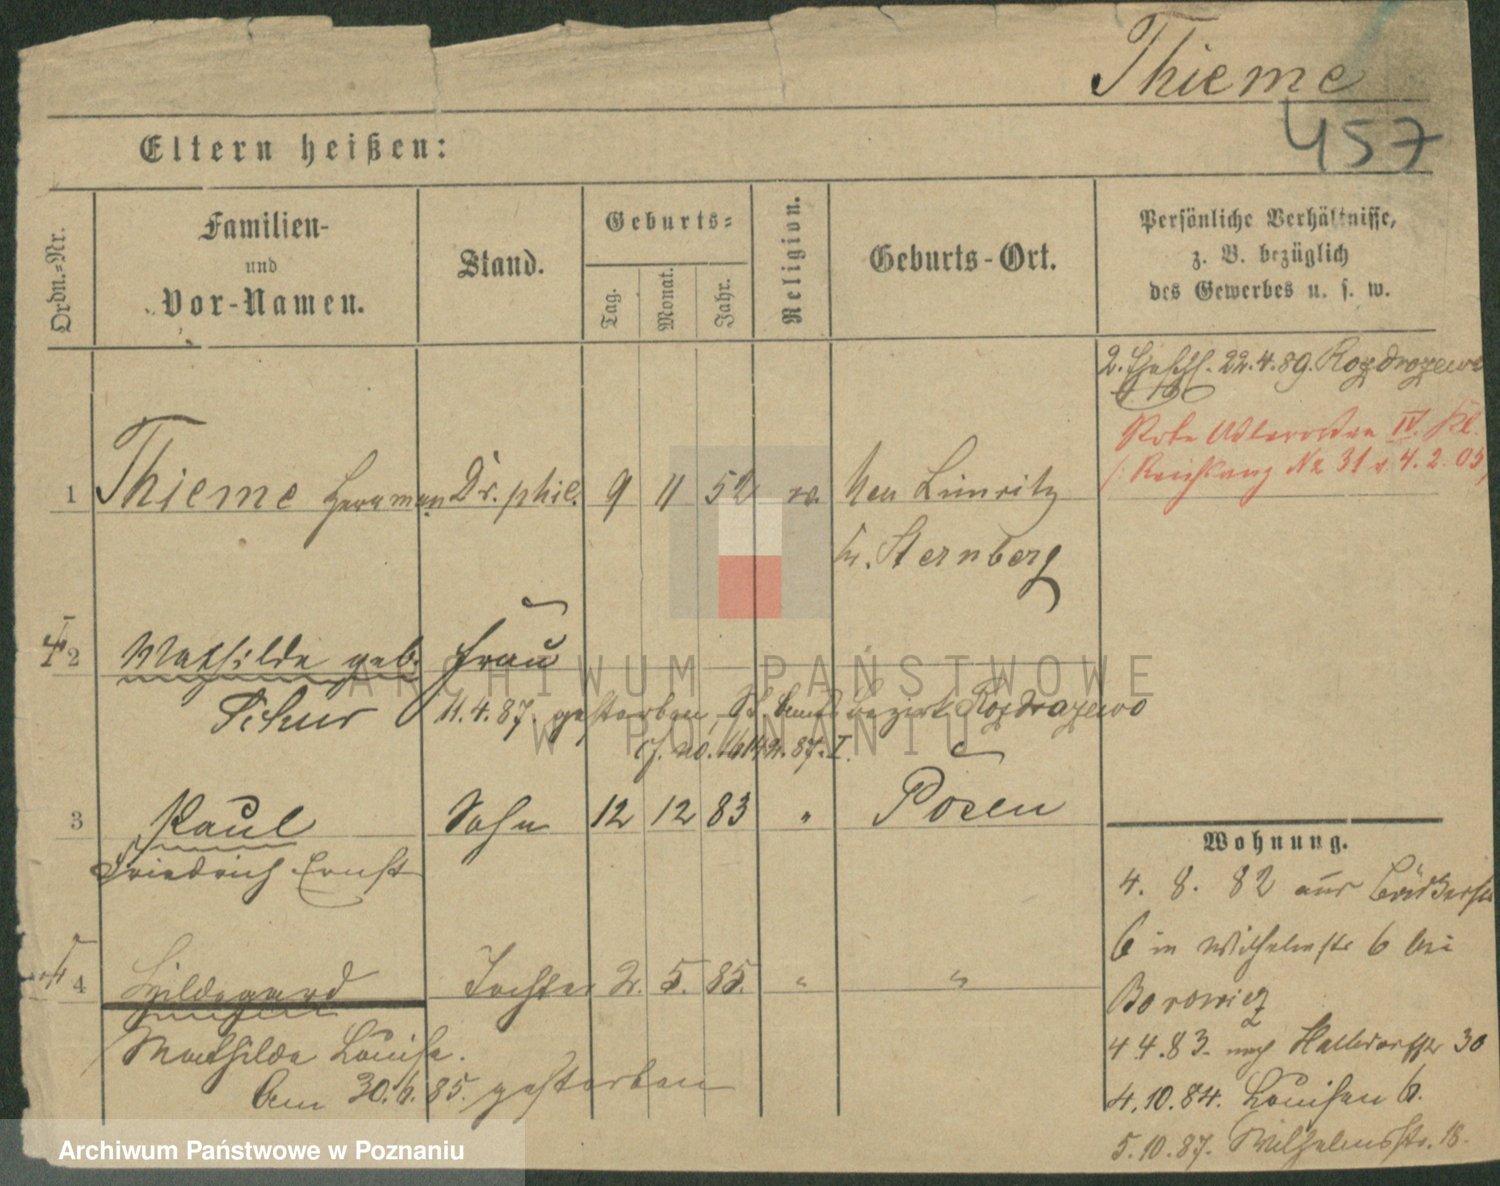 Thieme
457
Eltern heißen:
Ordn.=Nr.
Familien-
und
Vor-Namen.
Stand.
Geburts=
Tag.
Monat.
Jahr.
Religion.
Geburts-Ort.
Persönliche Verhältnisse,
z. B. bezüglich
des Gewerbes u. s. w.
22.4.89. Rozdrazewo
Rote Adlerorden IV. Kl.
31 v. 4. 2. 05
1 Thieme Hermann Dr. phil. 9 11 52 ev. Neu Limritz
Kr. Sternberg
2 Mathilde geb. Frau
Schur 11.4.87. gestorben, Rozdrazewo
87. I.
3 Paul Sohn 12 12 83 " Posen
Friedrich Ernst
4 Hildegard Tochter 2. 5. 85. " "
Mathilde Louise.
Am 30.6.85. gestorben
Wohnung.
4. 8. 82 aus
6 in Wilhelmstr 6 bei
Borowicz
4 4. 83. nach Halbdorfstr 30
4.10.84. Louisen 6.
5.10.87. Wilhelmsstr. 18.
ARCHIWUM PAŃSTWOWE
W POZNANIU
Archiwum Państwowe w Poznaniu